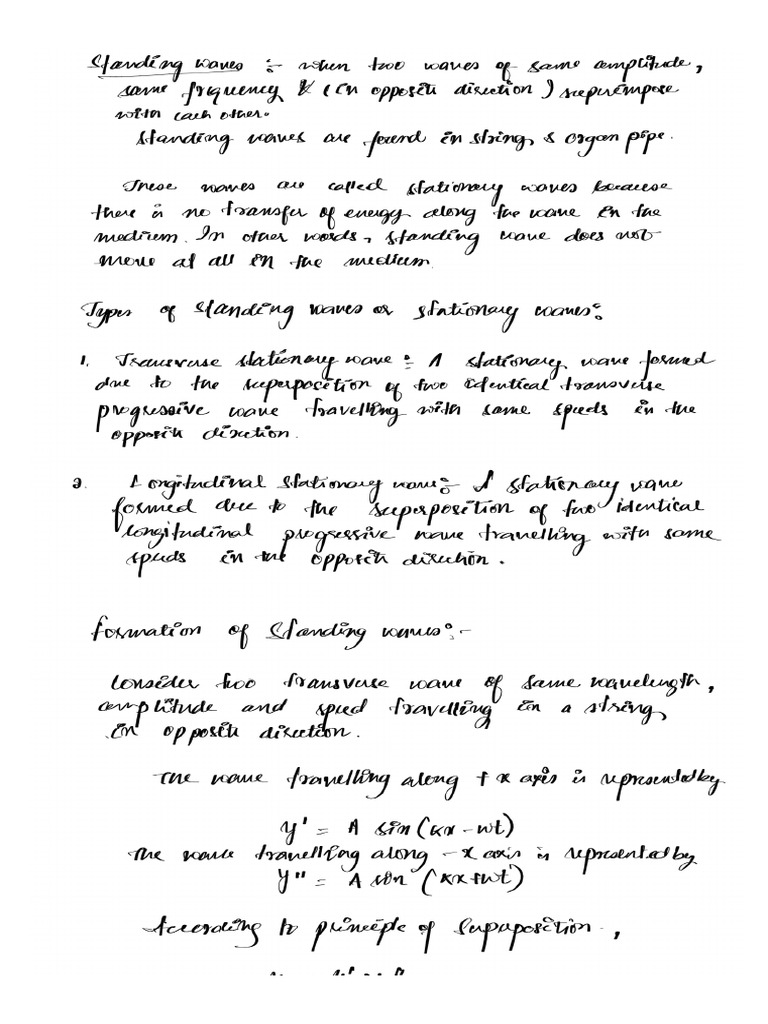 Standing waves :- when two waves of same amplitude,
same frequency & (in opposite direction) superimpose
with each other.
Standing waves are found in string & organ pipe.
These waves are called stationary waves because
there is no transfer of energy along the wave in the
medium. In other words, standing wave does not
move at all in the medium.
Types of standing waves or stationary waves:
1. Transverse stationary wave :- A stationary wave formed
due to the superposition of two identical transverse
progressive wave travelling with same speeds in the
opposite direction.
2. Longitudinal stationary wave :- A stationary wave
formed due to the superposition of two identical
longitudinal progressive wave travelling with same
speeds in the opposite direction.
Formation of standing waves :-
Consider two transverse wave of same wavelength,
amplitude and speed travelling in a string
in opposite direction.
The wave travelling along +x axis is represented by
y' = A sin(kx - wt)
The wave travelling along -x axis is represented by
y'' = A sin (kx+wt)
According to principle of superposition,